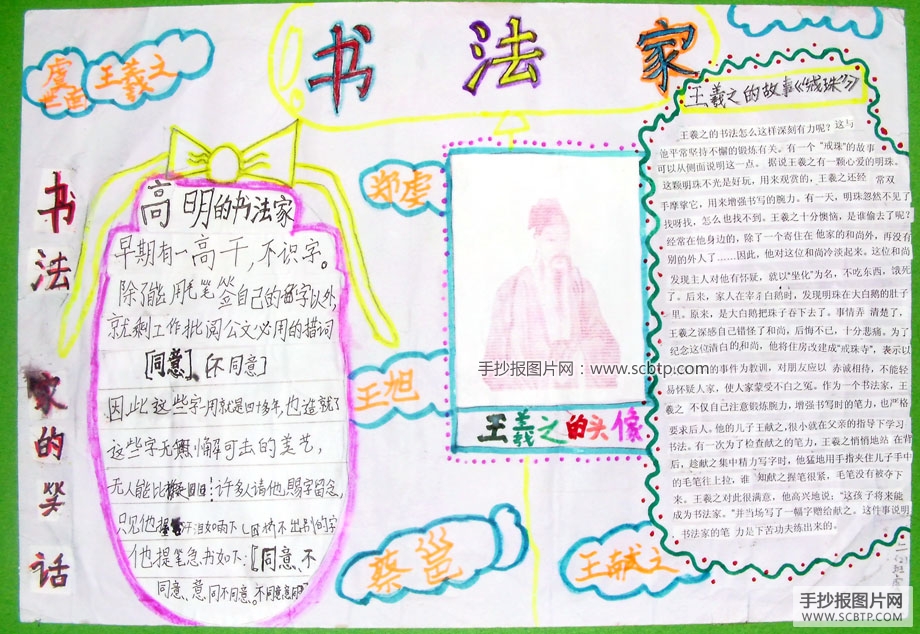 书法家
虞世
王羲之
羲
书法家的笑话
高明的书法家
早期有一高干，不识字。
除了能用毛笔签自己的名字以外，
就剩工作批阅公文必用的措词
[同意]、[不同意]
因此这些字一用就是四十多年，也造就了
这些字无懈可击的美艺，
无人能比
！许多人请他赐字留念，
只见他提
汗泪如雨下
不出别的字
他提笔急书如下：[同意、不
同意、意、同不同意。
郑虔
王旭
蔡邕
王献之
手抄报图片网：www.scbtp.com
王羲之的头像
王羲之的故事《戒珠》
王羲之的书法怎么这样深刻有力呢？这与
他平常坚持不懈的锻炼有关。有一个“戒珠”的故事
可以从侧面说明这一点。据说王羲之有一颗心爱的明珠。
这颗明珠不光是好玩，用来观赏的，王羲之还经 常双
手摩挲它，用来增强书写的腕力。有一天，明珠忽然不见了
找呀找，怎么也找不到。王羲之十分懊恼，是谁偷去了呢？
经常在他身边的，除了一个寄住在 他家的和尚外，再没有
别的外人了……因此，他对这位和尚冷淡起来。这位和尚
发现主人对他有怀疑，就以“坐化”为名，不吃东西，饿死
了。后来，家人在宰杀白鹅时，发现明珠在大白鹅的肚子
里。原来，是大白鹅把珠子吞下去了。事情弄 清楚了，
王羲之深感自己错怪了和尚，后悔不已，十分悲痛。为了
纪念这位清白的和尚，他将住房改建成“戒珠寺”，表示以
的事件为教训，对朋友应以 赤诚相待，不能轻
易怀疑人家，使人家蒙受不白之冤。作为一个书法家，王
羲之 不仅自己注意锻炼腕力，增强书写时的笔力，也严格
要求后人。他的儿子王献之，很小就在父亲的指导下学习
书法。有一次为了检查献之的笔力，王羲之悄悄地站 在背
后，趁献之集中精力写字时，他猛地用手指夹住儿子手中
的毛笔往上拉，谁 知献之握笔很紧，毛笔没有被夺下
来。王羲之对此很满意，他高兴地说：“这孩子将来能
成为书法家。”并当场写了一幅字赠给献之。这件事说明
书法家的笔 力是下苦功夫练出来的。
手抄报图片网
WWW.SCBTP.COM